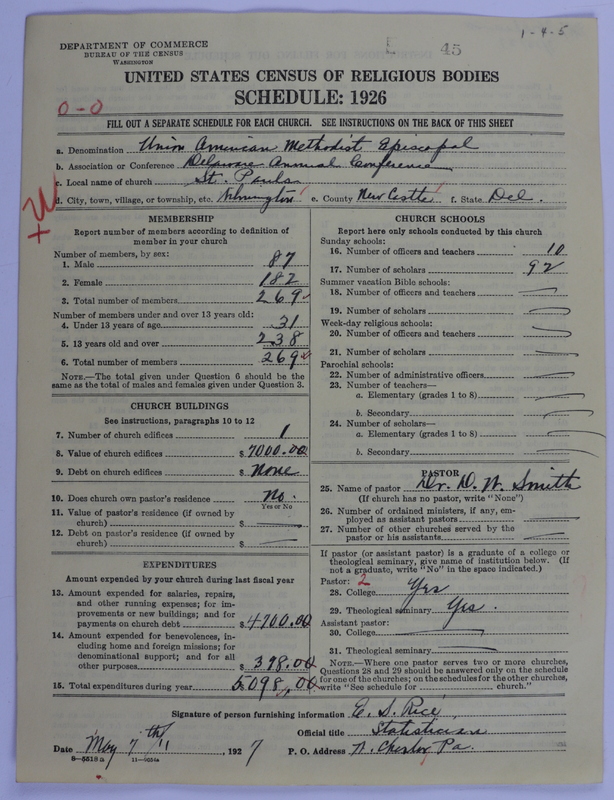 1-4-5
45
DEPARTMENT OF COMMERCE
BUREAU OF THE CENSUS
WASHINGTON
UNITED STATES CENSUS OF RELIGIOUS BODIES
SCHEDULE: 1926
0-0
FILL OUT A SEPARATE SCHEDULE FOR EACH CHURCH. SEE INSTRUCTIONS ON THE BACK OF THIS SHEET
a. Denomination Union American Methodist Episcopal
b. Association or Conference Delaware Annual Conference
c. Local name of church St. Pauls
d. City, town, village, or township, etc. Wilmington e. County New Castle f. State Del.
MEMBERSHIP
Report number of members according to definition of
member in your church
Number of members, by sex:
1. Male 87
2. Female 182
3. Total number of members 269
Number of members under and over 13 years old:
4. Under 13 years of age 31
5. 13 years old and over 238
6. Total number of members 269
NOTE.—The total given under Question 6 should be the
same as the total of males and females given under Question 3.
CHURCH BUILDINGS
See instructions, paragraphs 10 to 12
7. Number of church edifices 1
8. Value of church edifices $ 7000.00
9. Debt on church edifices $ None
10. Does church own pastor's residence No.
Yes or No
11. Value of pastor's residence (if owned by
church) $
12. Debt on pastor's residence (if owned by
church) $
EXPENDITURES
Amount expended by your church during last fiscal year
13. Amount expended for salaries, repairs,
and other running expenses; for im-
provements or new buildings; and for
payments on church debt $ 4700.00
14. Amount expended for benevolences, in-
cluding home and foreign missions; for
denominational support; and for all
other purposes $ 398.00
15. Total expenditures during year 5098.00
CHURCH SCHOOLS
Report here only schools conducted by this church
Sunday schools:
16. Number of officers and teachers 10
17. Number of scholars 92
Summer vacation Bible schools:
18. Number of officers and teachers
19. Number of scholars
Week-day religious schools:
20. Number of officers and teachers
21. Number of scholars
Parochial schools:
22. Number of administrative officers
23. Number of teachers—
a. Elementary (grades 1 to 8)
b. Secondary
24. Number of scholars—
a. Elementary (grades 1 to 8)
b. Secondary
PASTOR
25. Name of pastor Dr. D. W. Smith
(If church has no pastor, write "None")
26. Number of ordained ministers, if any, em-
ployed as assistant pastors
27. Number of other churches served by the
pastor or his assistants
If pastor (or assistant pastor) is a graduate of a college or
theological seminary, give name of institution below. (If
not a graduate, write "No" in the space indicated.)
Pastor: 2
28. College Yes
29. Theological seminary Yes.
Assistant pastor:
30. College
31. Theological seminary
NOTE.—Where one pastor serves two or more churches,
Questions 28 and 29 should be answered only on the schedule
for one of the churches; on the schedules for the other churches,
write "See schedule for church."
Signature of person furnishing information E. S. Rice
Official title Statistician
Date May 7th/11, 1927 P. O. Address W. Chester, Pa.
8—5518a 11—9234a